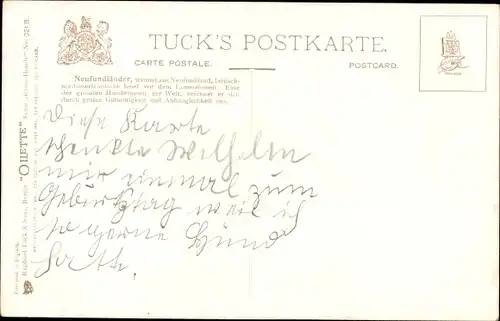 TUCK'S POSTKARTE.
CARTE POSTALE.
POSTCARD.
Neufundländer, stammt aus Neufundland, britisch-
nordamerikanische Insel vor dem Lorenzbusen. Eine
der grössten Hunderassen der Welt, zeichnet er sich
durch grosse Gutmütigkeit und Anhänglichkeit aus.
Diese Karte
schenkte Wilhelm
mir einmal zum
Geburtstag weil ich
so gerne Hund
hatte.
Raphael Tuck & Sons, Berlin "OILETTE" Serie